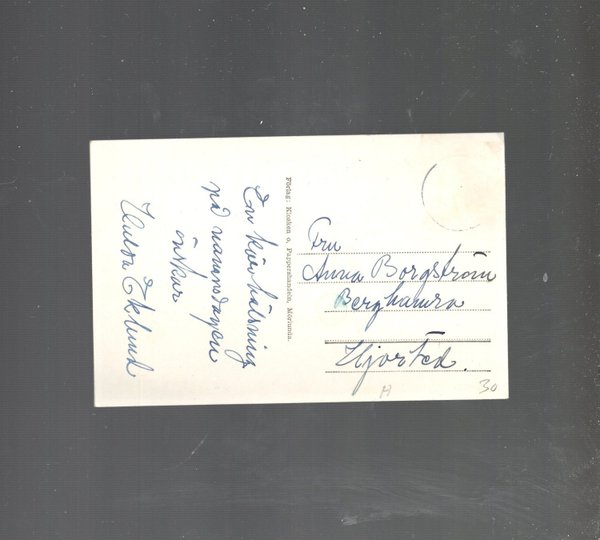 En kär hälsning
på namnsdagen
önskar
Hulda Eklund
Förlag: Kiosken o. Pappershandeln, Mörlunda.
Fru
Anna Borgström
Berghamra
Hjorted.
M
30